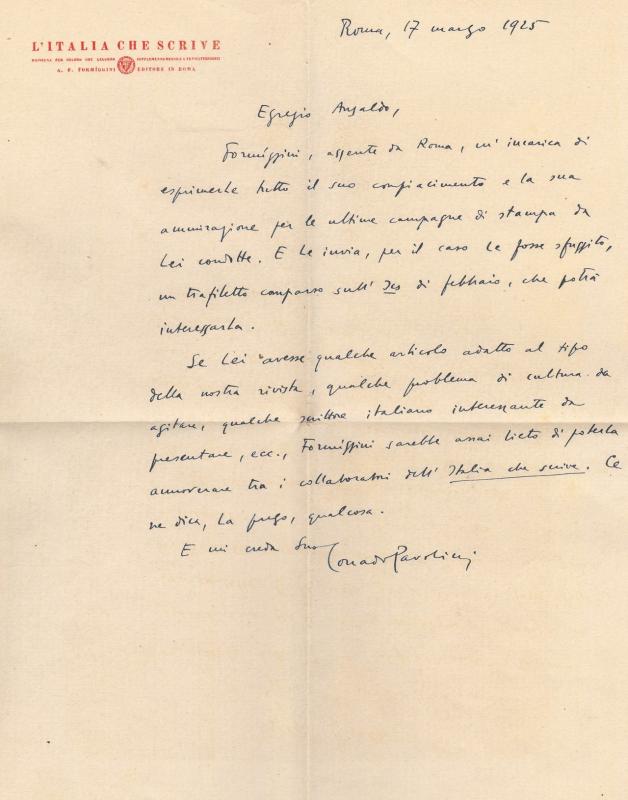 Roma, 17 marzo 1925
L'ITALIA CHE SCRIVE
RASSEGNA PER COLORO CHE LEGGONO
SUPPLEMENTO MENSILE A TUTTI I PERIODICI
A. F. FORMÍGGINI EDITORE IN ROMA
Egregio Ansaldo,
Formíggini, assente da Roma, m'incarica di
esprimerLe tutto il suo compiacimento e la sua
ammirazione per le ultime campagne di stampa da
Lei condotte. E Le invia, per il caso Le fosse sfuggito,
un trafiletto comparso sull'Ics di febbraio, che potrà
interessarLa.
Se Lei avesse qualche articolo adatto al tipo
della nostra rivista, qualche problema di cultura da
agitare, qualche scrittore italiano interessante da
presentare, ecc., Formíggini sarebbe assai lieto di poterLa
annoverare tra i collaboratori dell'Italia che scrive. Ce
ne dica, La prego, qualcosa.
E mi creda Suo Corrado Pavolini